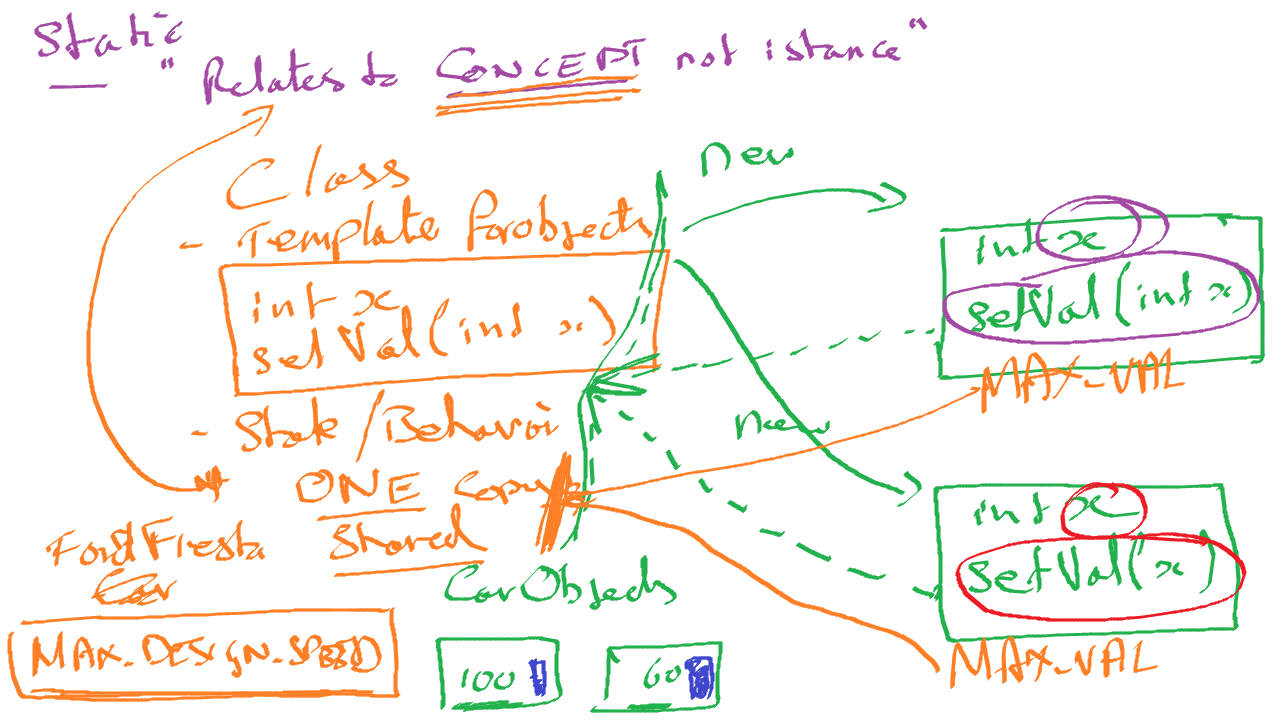 Static
" Relates to CONCEPT not istance"
Class
- Template for objects
int x
setVal(int x)
- State/Behavior
ONE Copy
Shared
new
int x
setVal(int x)
MAX_VAL
new
int x
setVal(x)
MAX_VAL
Ford Fiesta
Car
MAX_DESIGN_SPEED
Car Objects
100
60